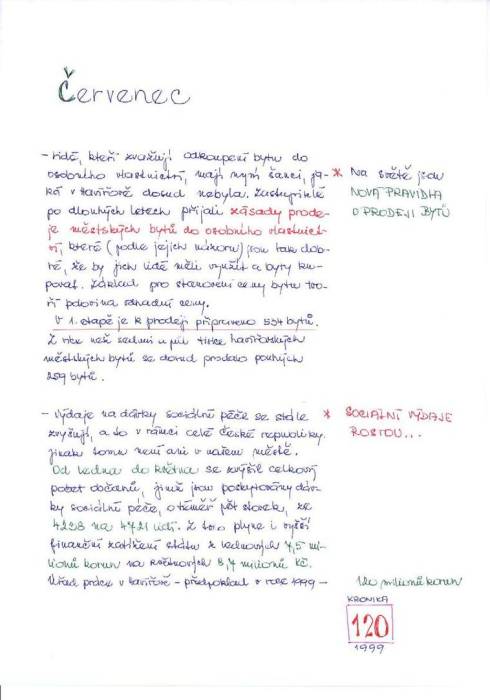 Červenec
- lidé, kteří zvažují odkoupení bytu do
osobního vlastnictví, mají nyní šanci, ja-
ká v Havířově dosud nebyla. Zastupitelé
po dlouhých letech přijali zásady prode-
je městských bytů do osobního vlastnict-
ví, které (podle jejich názoru) jsou tak dob-
ré, že by jich lidé měli využít a byty ku-
povat. Základ pro stanovení ceny bytu tvo-
ří polovina odhadní ceny.
V 1. etapě je k prodeji připraveno 534 bytů.
Z více než sedmi a půl tisíce havířovských
městských bytů se dosud prodalo pouhých
259 bytů.
* Na světě jsou
NOVÁ PRAVIDLA
O PRODEJI BYTŮ
- Výdaje na dávky sociální péče se stále
zvyšují, a to v rámci celé České republiky.
Jinak tomu není ani v našem městě.
Od ledna do května se zvýšil celkový
počet občanů, jimž jsou poskytovány dáv-
ky sociální péče, o téměř pět stovek, ze
4228 na 4721 lidí. Z toho plyne i vyšší
finanční zatížení státu z lednových 7,5 mi-
lionů korun na květnových 8,7 milionů Kč.
Úřad práce v Havířově - předpoklad v roce 1999 -
* SOCIÁLNÍ VÝDAJE
ROSTOU...
120 milionů korun
KRONIKA
120
1999